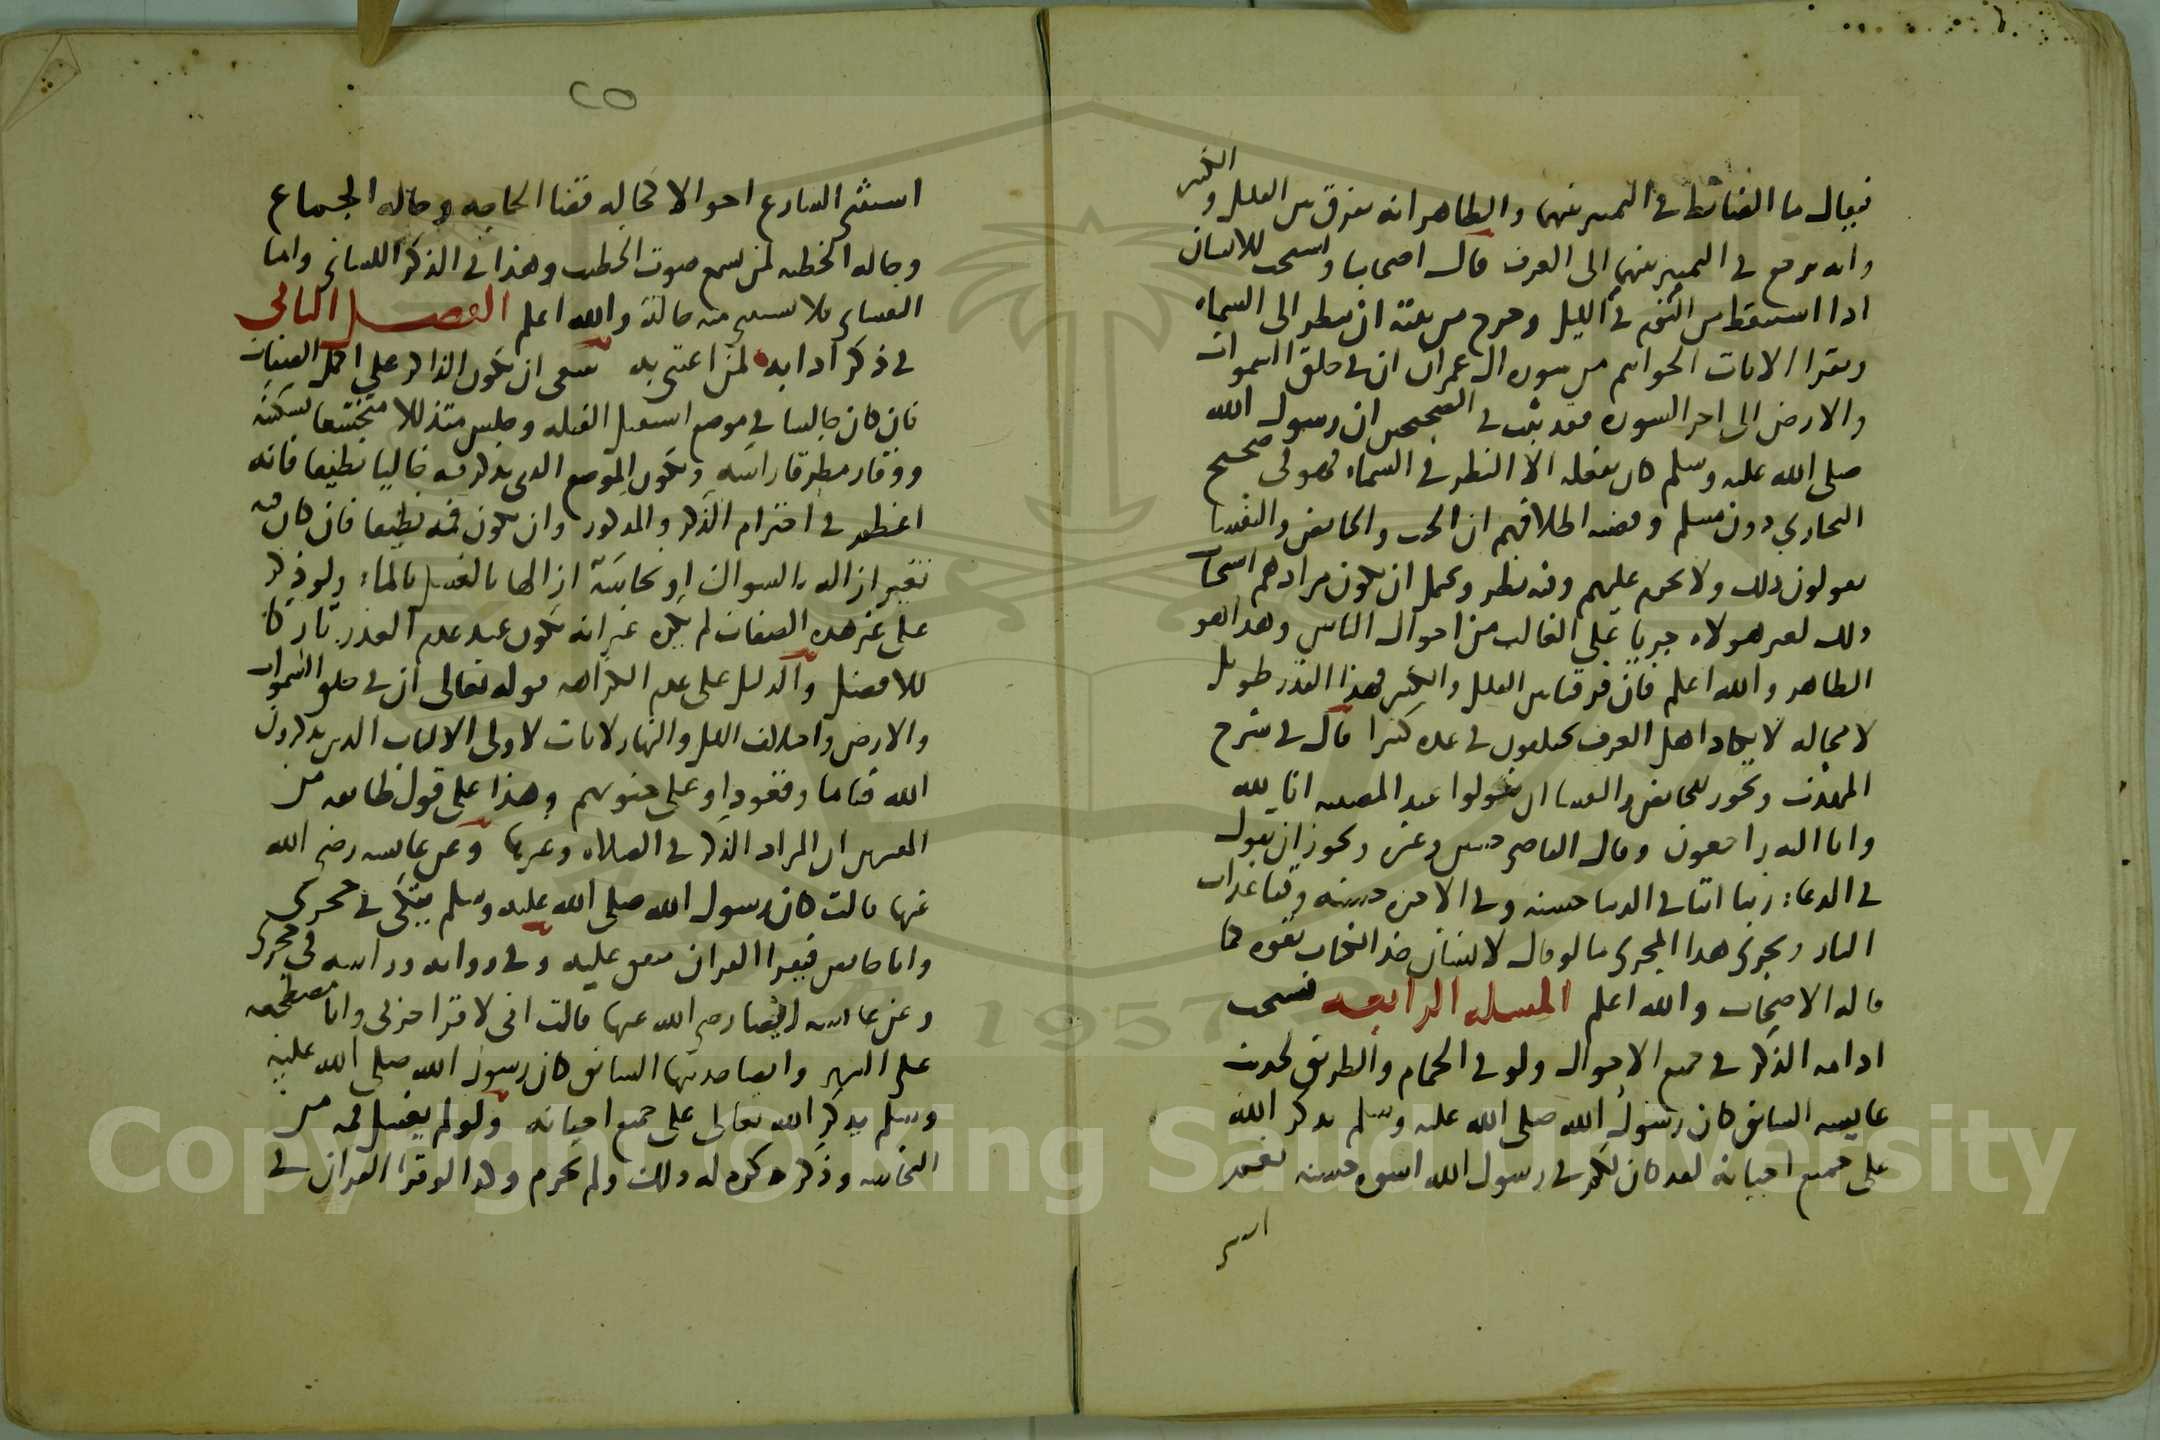 فيقال ما الضابط في التمييز بينهما والظاهر انه يفرق بين القليل والكثير
وانه يرجع في التمييز بينهما الى العرف قال اصحابنا ويستحب للانسان
اذا استيقظ من النوم في الليل وخرج من بيته ان ينظر الى السماء
ويقرا الايات الخواتم من سورة ال عمران ان في خلق السموات
والارض الى اخر السورة فقد ثبت في الصحيحين ان رسول الله
صلى الله عليه وسلم كان يفعله الا النظر في السماء فهو في صحيح
البخاري دون مسلم وقضية اطلاقهم ان الجنب والحائض والنفسا
يقولون ذلك ولا يحرم عليهم وفيه نظر ويحتمل ان يكون مرادهم استحباب
ذلك لغير هولاء جريا على الغالب من احوال الناس وهذا هو
الظاهر والله اعلم فان فرقنا بين القليل والكثير فهذا القدر طويل
لا محالة لا يكاد اهل العرف يختلفون في عده كثيرا قال في شرح
المهذب ويجوز للحائض والنفسا ان يقولوا عند المصيبة انا لله
وانا اليه راجعون وقال القاضي حسين وغيره ويجوز ان يقول
في الدعاء ربنا اتنا في الدنيا حسنة وفي الاخرة حسنة وقنا عذاب
النار ويجري هذا المجرى ما لو قال لانسان خذ الكتاب بقوة كما
قاله الاصحاب والله اعلم المسئلة الرابعة تستحب
ادامة الذكر في جميع الاحوال ولو في الحمام والطريق لحديث
عايشة السابق كان رسول الله صلى الله عليه وسلم يذكر الله
على جميع احيانه لقد كان لكم في رسول الله اسوة حسنة نعم
استثنى
٢٥
استثنى الشارع احوالا كحالة قضا الحاجة وحالة الجماع
وحالة الخطبة لمن سمع صوت الخطيب وهذا في الذكر اللساني واما
النفساني فلا يستثنى منه حالة والله اعلم الفصل الثاني
في ذكر ادابه لمن اعتنى به ينبغي ان يكون الذاكر على اكمل الصفات
فان كان جالسا في موضع استقبل القبلة وجلس متذللا متخشعا بسكينة
ووقار مطرقا راسه ويكون الموضع الذي يذكر فيه خاليا نظيفا فانه
اعظم في احترام الذكر والمذكور وان يكون فمه نظيفا فان كان فيه
تغير ازاله بالسواك او نجاسة ازالها بالغسل بالماء ولو ذكر
على غير هذه الصفات لم يكره غير انه يكون عند عدم العذر تاركا
للافضل والدليل على عدم الكراهة قوله تعالى ان في خلق السموات
والارض واختلاف الليل والنهار لايات لاولي الالباب الذين يذكرون
الله قياما وقعودا وعلى جنوبهم وهذا على قول طائفة من
المفسرين ان المراد الذكر في الصلاة وغيرها وعن عائشة رضي الله
عنها قالت كان رسول الله صلى الله عليه وسلم يتكي في حجري
وانا حائض فيقرا القران متفق عليه وفي رواية وراسه في حجري
وعن عائشة ايضا رضي الله عنها قالت اني لاقرا حزبي وانا مضطجعة
على السرير وايضا حديثها السابق كان رسول الله صلى الله عليه
وسلم يذكر الله تعالى على جميع احيانه ولو لم يغسل فمه من
النجاسة وذكر كره له ذلك ولم يحرم وكذا لو قرا القران في
1957
Copyright © King Saud University